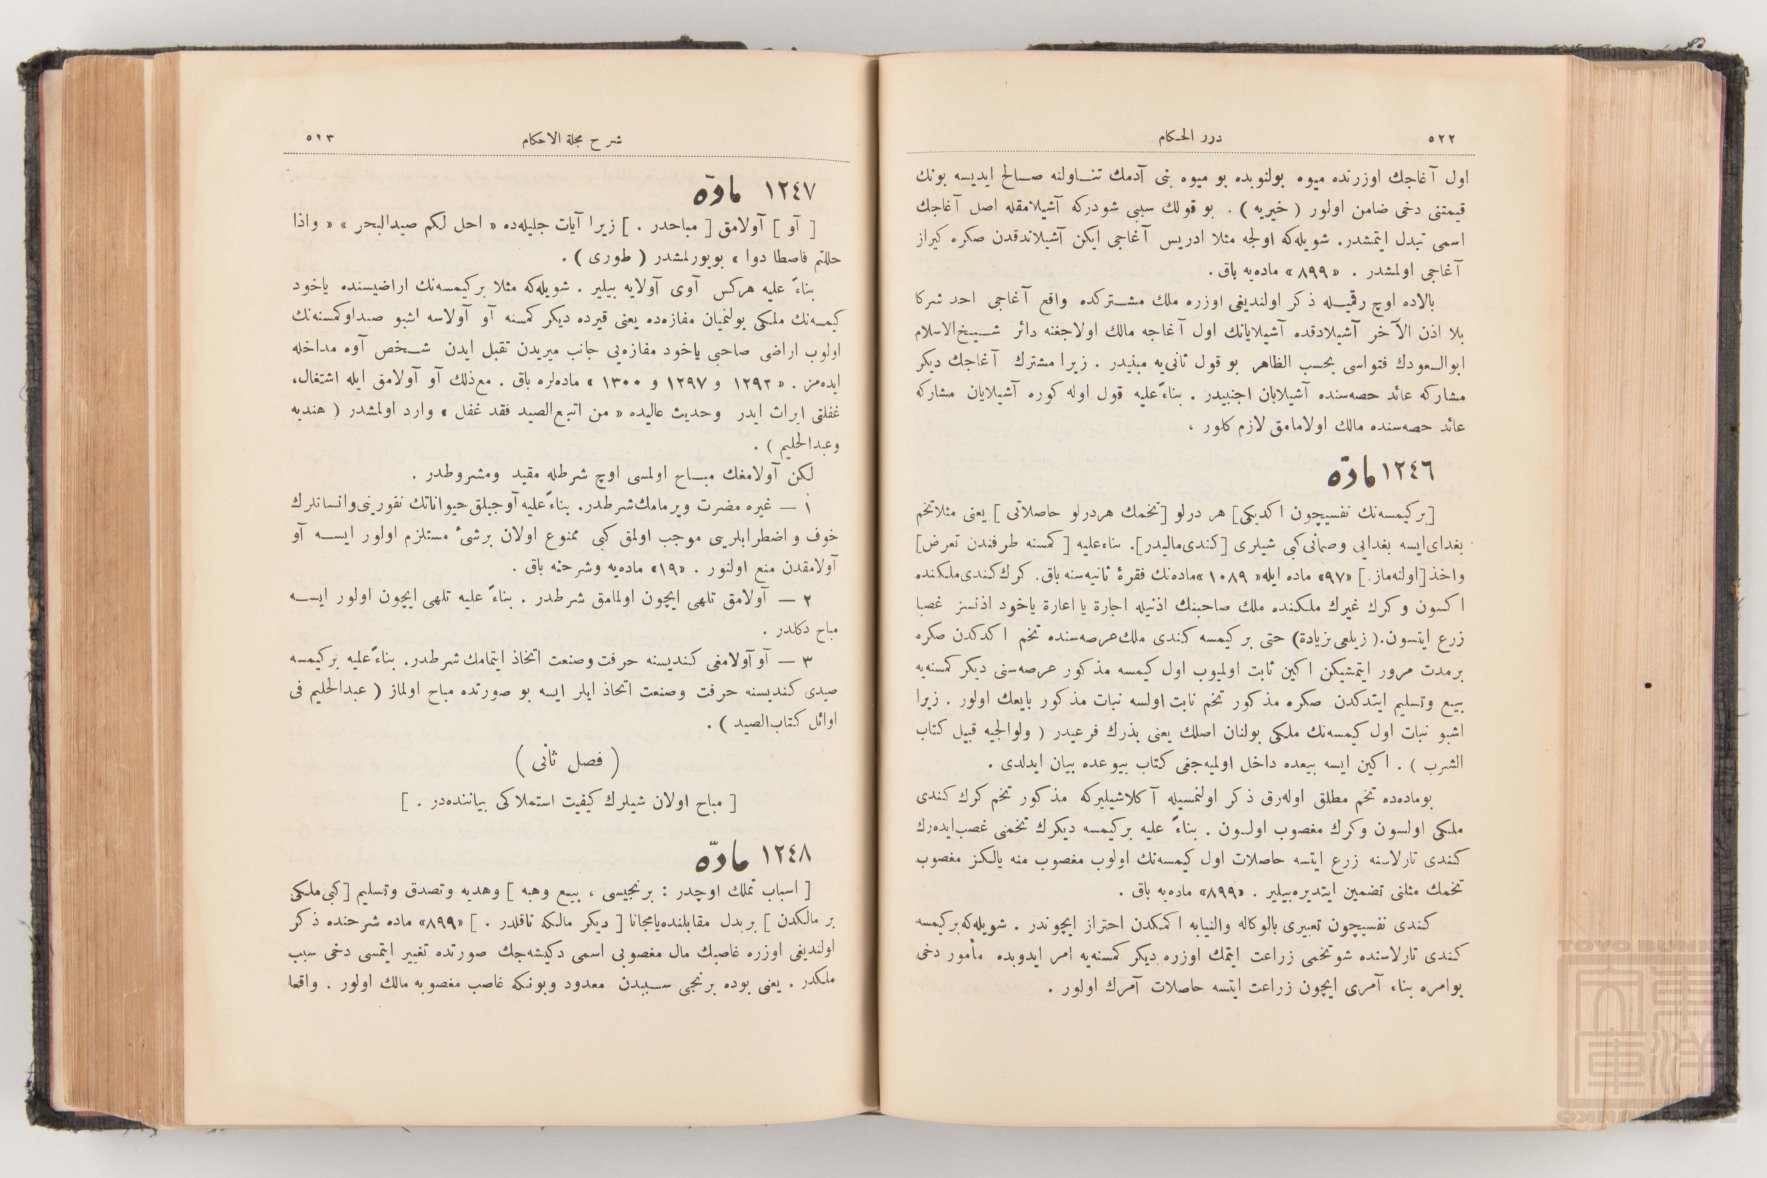 ٥٢٢
درر الحكام
اول آغاجك اوزرنده ميوه بولنوبده بو ميوه بنى آدمك تنـاولنه صـالح ايديسه بونك
قيمتنى دخى ضامن اولور ( خيريه ) . بو قولك سببى شودركه آشيلامقله اصل آغاجك
اسمى تبدل ايتمشدر. شويله‌كه اولجه مثلا ادريس آغاجى ايكن آشيلاندقدن صكره كيراز
آغاجى اولمشدر . «٨٩٩» ماده‌يه باق.
بالاده اوچ رقميـله ذكر اولنديغى اوزره ملك مشـتركده واقع آغاجى احد شركا
بلا اذن الآخر آشيلادقده آشيلايانك اول آغاجه مالك اولاجغنه دائر شـيخ‌الاسلام
ابوالسعودك فتواسى بحسب الظاهر بو قول ثانى‌يه مبنيدر . زيرا مشترك آغاجك ديكر
مشاركه عائد حصه‌سنده آشيلايان اجنبيدر . بناءً عليه قول اوله كوره آشيلايان مشاركه
عائد حصه‌سنده مالك اولامامق لازم كلور ،
١٢٤٦ مادّه
[بركيمسه‌نك نفسيچون اكديكى] هر درلو [تخمك هردرلو حاصلاتى ] يعنى مثلاتخم
بغداى‌ايسه بغدايى وصمانى‌كبى شيلرى [كندى‌ماليدر]. بناءعليه [كمسنه طرفندن تعرض]
واخذ[اولنه‌ماز.] «٩٧» ماده ايله «١٠٨٩»ماده‌نك فقرۀ ثانيه‌سنه باق. كرك‌كندى‌ملكنده
اكسون وكرك غيرك ملكنده ملك صاحبنك اذنيله اجارة يا اعارة ياخود اذنسز غصبا
زرع ايتسون.(زيلعى‌بزيادة) حتى بر كيمسه كندى ملك‌عرصه‌سنده تخم اكدكدن صكره
برمدت مرور ايتمشيكن اكين ثابت اولميوب اول كيمسه مذكور عرصه‌سنى ديكر كمسنه‌يه
بيع وتسليم ايتدكدن صكره مذكور تخم نابت اولسه نبات مذكور بايعك اولور . زيرا
اشبو نبات اول كيمسه‌نك ملكى بولنان اصلك يعنى بذرك فرعيدر ( ولوالجيه قبيل كتاب
الشرب ) . اكين ايسه بيعده داخل اولميه‌جغى كتاب بيوعده بيان ايدلدى .
بوماده‌ده تخم مطلق اوله‌رق ذكر اولنمسيله آكلاشيليركه مذكور تخم كرك كندى
ملكى اولسون وكرك مغصوب اولـون . بناءً عليه بركيمسه ديكرك تخمنى غصب‌ايده‌رك
كندى تارلاسنه زرع ايتسه حاصلات اول كيمسه‌نك اولوب مغصوب منه يالكز مغصوب
تخمك مثلنى تضمين ايتديره‌بيلير . «٨٩٩» ماده‌يه باق .
كندى نفسيچون تعبيرى بالوكاله والنيابه اكمكدن احتراز ايچوندر . شويله‌كه‌بركيمسه
كندى تارلاسنده شوتخمى زراعت ايتمك اوزره ديكر كمسنه‌يه امر ايدوبده مأمور دخى
بوامره بناء آمرى ايچون زراعت ايتسه حاصلات آمرك اولور .
شرح مجلة الاحكام
٥٢٣
١٢٤٧ مادّه
[ آو ] آولامق [ مباحدر . ] زيرا آيات جليله‌ده « احل لكم صيدالبحر » « واذا
حللتم فاصطادوا » بويورلمشدر ( طورى ) .
بناءً عليه هركس آوى آولايه بيلير . شويله‌كه مثلا بركيمسه‌نك اراضيسنده ياخود
كيمسه‌نك ملكى بولنميان مفازه‌ده يعنى قيرده ديكر كمسنه آو آولاسه اشبو صيداوكمسنه‌نك
اولوب اراضى صاحبى ياخود مفازه‌يى جانب ميريدن تقبل ايدن شـخص آوه مداخله
ايده‌مز . «١٢٩٢ و ١٢٩٧ و ١٣٠٠» ماده‌لره باق . مع‌ذلك آو آولامق ايله اشتغال،
غفلتى ايراث ايدر وحديث عاليده « من اتبع‌الصيد فقد غفل » وارد اولمشدر ( هنديه
وعبدالحليم ) .
لكن آولامغك مبـاح اولمسى اوچ شرطله مقيد ومشروطدر .
١ — غيره مضرت ويرمامك‌شرطدر. بناءًعليه‌آوجيلق‌حيواناتك نفورينى‌وانسانلرك
خوف واضطرابلرينى موجب اولمق كبى ممنوع اولان برشئ مستلزم اولور ايسـه آو
آولامقدن منع اولنور . «١٩» ماده‌يه وشرحنه باق .
٢ — آولامق تلهى ايچون اولمامق شرطدر . بناءً عليه تلهى ايچون اولور ايسـه
مباح دكلدر .
٣ — آو آولامغى كنديسنه حرفت وصنعت اتخاذ ايتمامك شرطدر. بناءً عليه بركيمسه
صيدى كنديسنه حرفت وصنعت اتخاذ ايلر ايسه بو صورتده مباح اولماز ( عبدالحليم فى
اوائل كتاب‌الصيد ) .
( فصل ثانى )
[ مباح اولان شيلرك كيفيت استملاكى بياننده‌در . ]
١٢٤٨ مادّه
[ اسباب تملك اوچدر : برنجيسى ، بيع وهبه ] وهديه وتصدق وتسليم [كبى‌ملكى
بر مالكدن ] بربدل مقابلنده‌يامجانا [ ديكر مالكه ناقلدر . ] «٨٩٩» ماده شرحنده ذكر
اولنديغى اوزره غاصبك مال مغصوبى اسمى دكيشه‌جك صورتده تغيير ايتمسى دخى سبب
ملكدر . يعنى بوده برنجى سـببدن معدود وبونكه غاصب مغصوبه مالك اولور . واقعا
TOYO BUNKO
東洋文庫